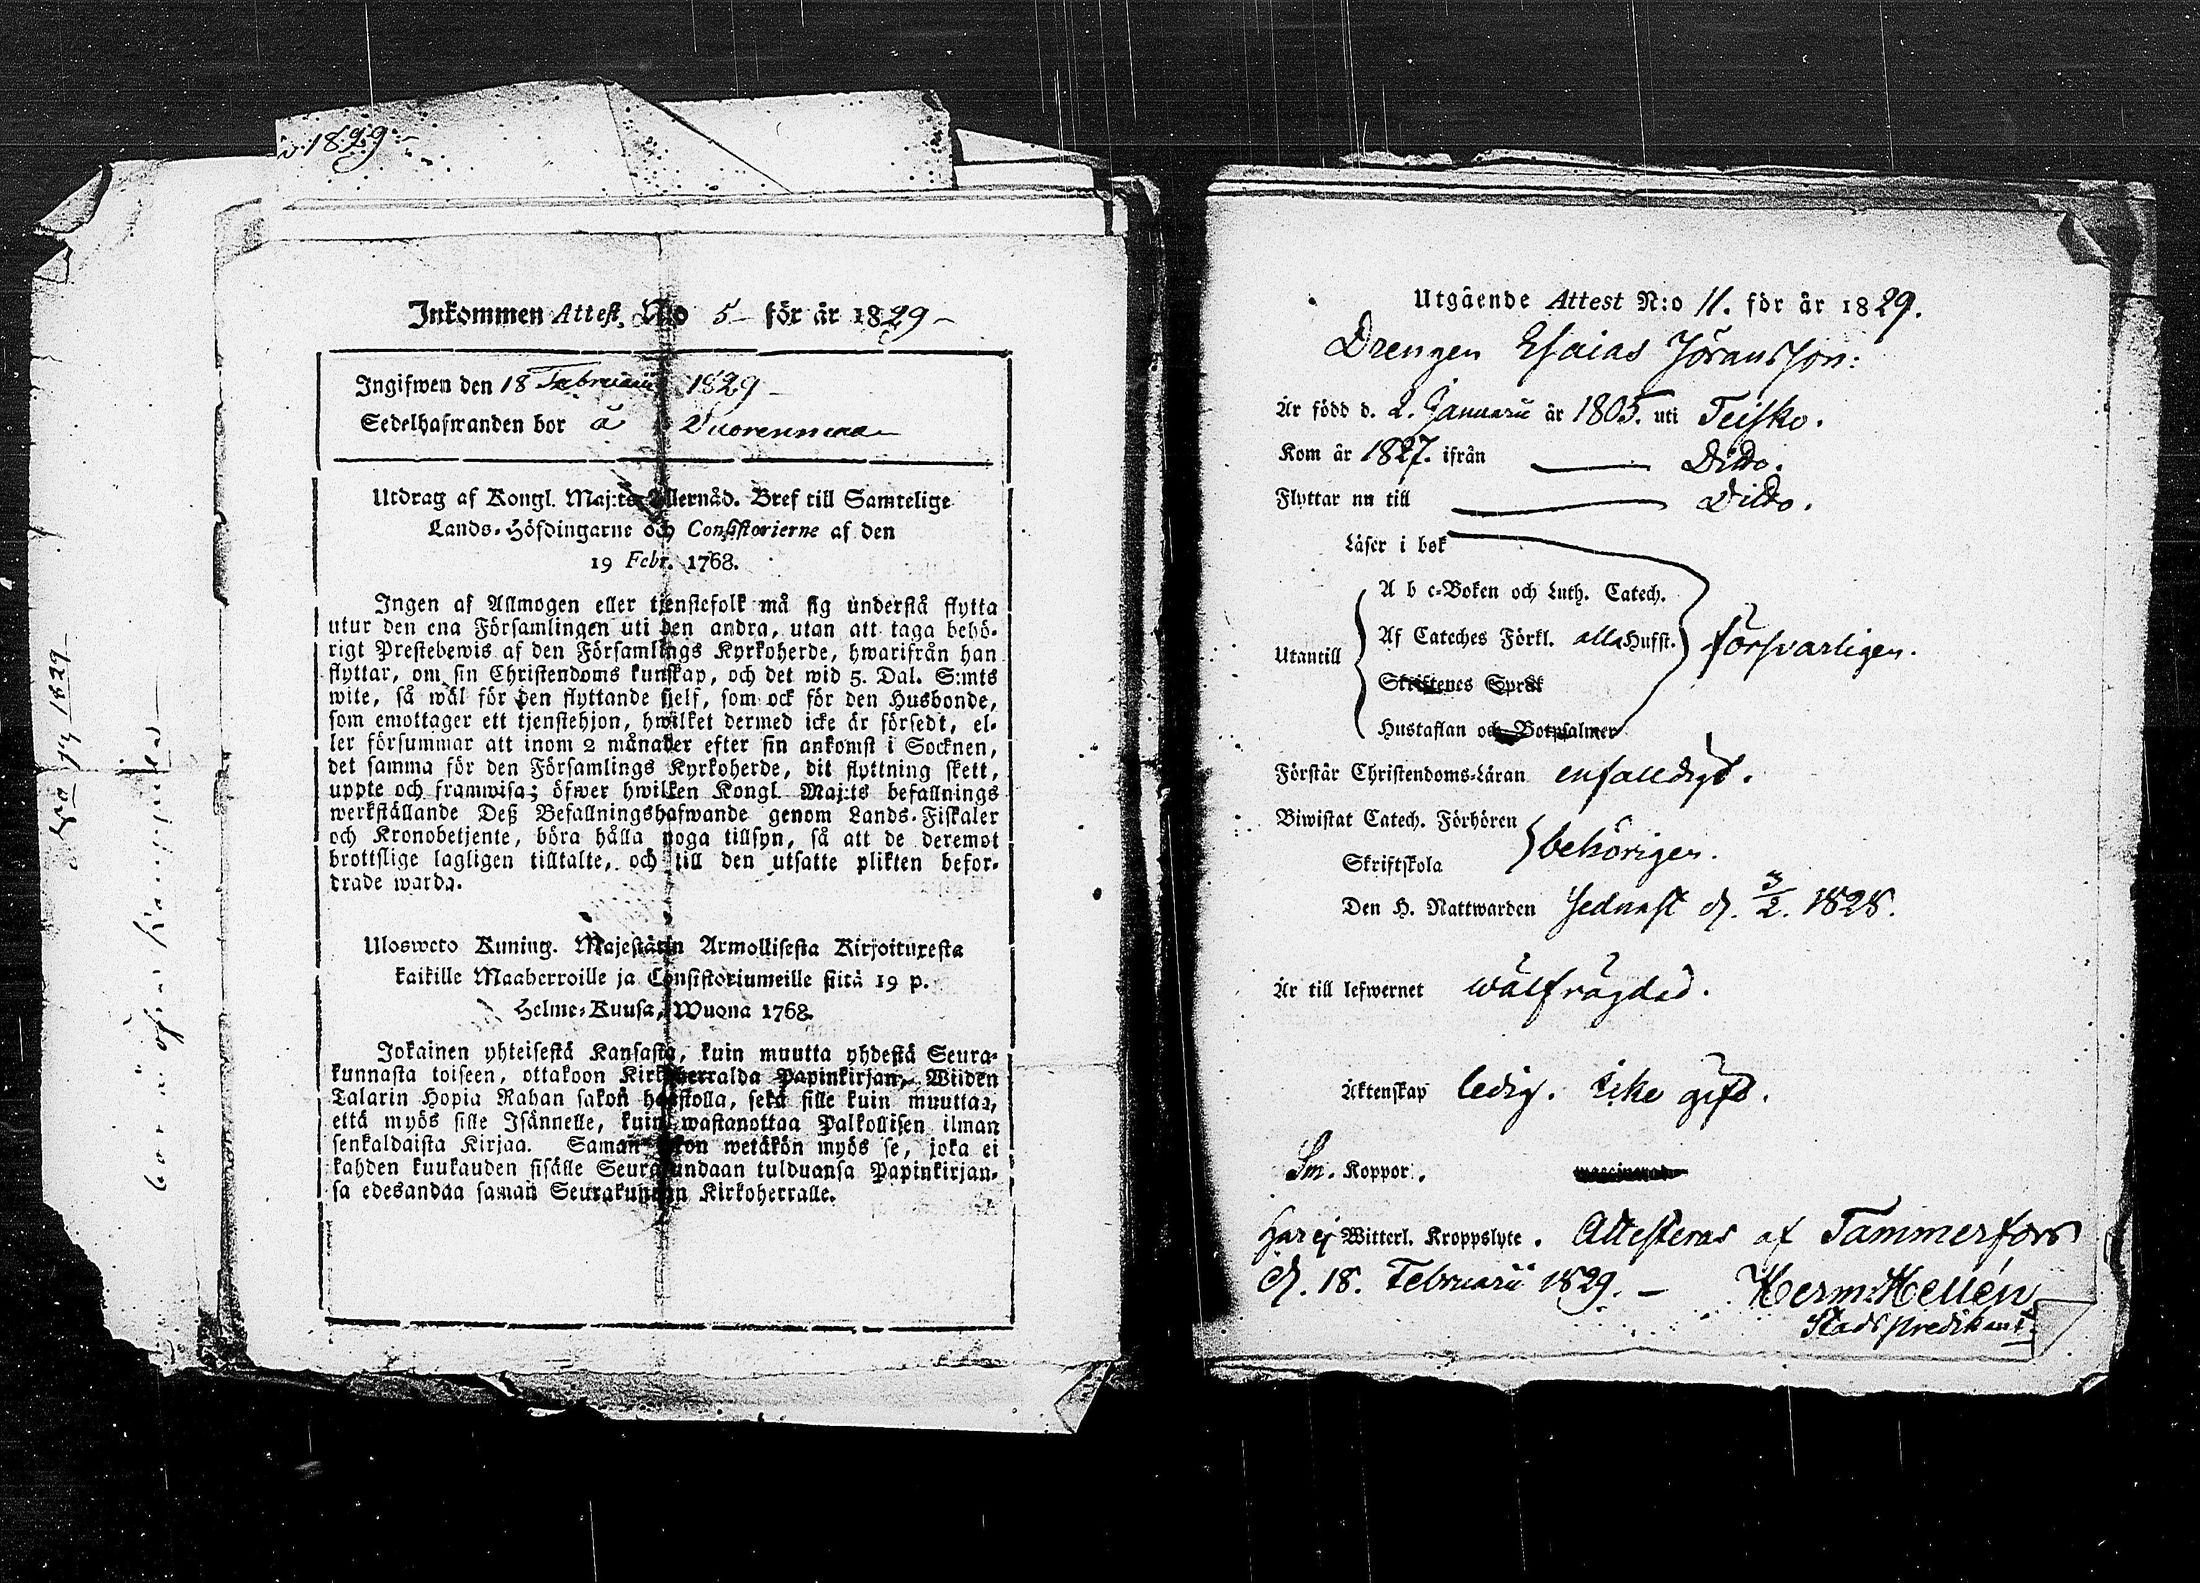 1829
Inkommen Attest. N:o 5 för år 1829
Ingifwen den 18 Februarii 1829
Sedelhafwanden bor å Vuorenmaa
Utdrag af Kongl. Maj:ts Allernåd. Bref till Samtelige
Lands-Höfdingarne och Consistorierne af den
19 Febr. 1768.
Ingen af Allmogen eller tjenstefolk må sig understå flytta
utur den ena Församlingen uti den andra, utan att taga behö-
rigt Prestebewis af den Församlings Kyrkoherde, hwarifrån han
flyttar, om sin Christendoms kunskap, och det wid 5. Dal. S:mts
wite, så wäl för den flyttande sjelf, som ock för den Husbonde,
som emottager ett tjenstehjon, hwilket dermed icke är försedt, el-
ler försummar att inom 2 månader efter sin ankomst i Socknen,
det samma för den Församlings Kyrkoherde, dit flyttning skett,
uppte och framwisa; öfwer hwilken Kongl. Maj:ts befallnings
werkställande Deß Befallningshafwande genom Lands-Fiskaler
och Kronobetjente, böra hålla noga tillsyn, så att de deremot
brottslige lagligen tilltalte, och till den utsatte plikten befor-
drade warda.
Ulosweto Kuning. Majestätin Armollisesta Kirjoituxesta
kaikille Maaherroille ja Consistoriumeille siitä 19 p.
Helme-Kuusa, Wuona 1768.
Jokainen yhteisestä Kansasta, kuin muutta yhdestä Seura-
kunnasta toiseen, ottakoon Kirkkoherralda Papinkirjan, Wiiden
Talarin Hopia Rahan sakon haastolla, sekä sille kuin muuttaa,
että myös sille Isännelle, kuin wastanottaa Palkollisen ilman
senkaldaista Kirjaa. Saman sakon wetäkön myös se, joka ei
kahden kuukauden sisälle Seurakundaan tulduansa Papinkirjan-
sa edesandaa saman Seurakunnan Kirkoherralle.
Utgående Attest N:o 11. för år 1829.
Drengen Esaias Jöransson:
Är född d. 2. Januarii år 1805. uti Teisko.
Kom år 1827. ifrån Ditto.
Flyttar nu till Ditto.
Läser i bok
A b c-Boken och Luth. Catech.
Utantill Af Cateches Förkl. alla Hufst. försvarligen.
Skriftenes Språk
Hustaflan och Botpsalmer
Förstår Christendoms-Läran enfalldigt.
Biwistat Catech. Förhören
behörigen.
Skriftskola
Den H. Nattwarden sednast d. 3/2. 1828.
Är till lefwernet wälfrägdad.
Äktenskap ledig. icke gift.
Sm. Koppor.
Har ej Witterl. Kroppslyte. Attesteras af Tammerfors
d. 18. Februarii 1829.
Herm: Hellén
Stadspredikant.